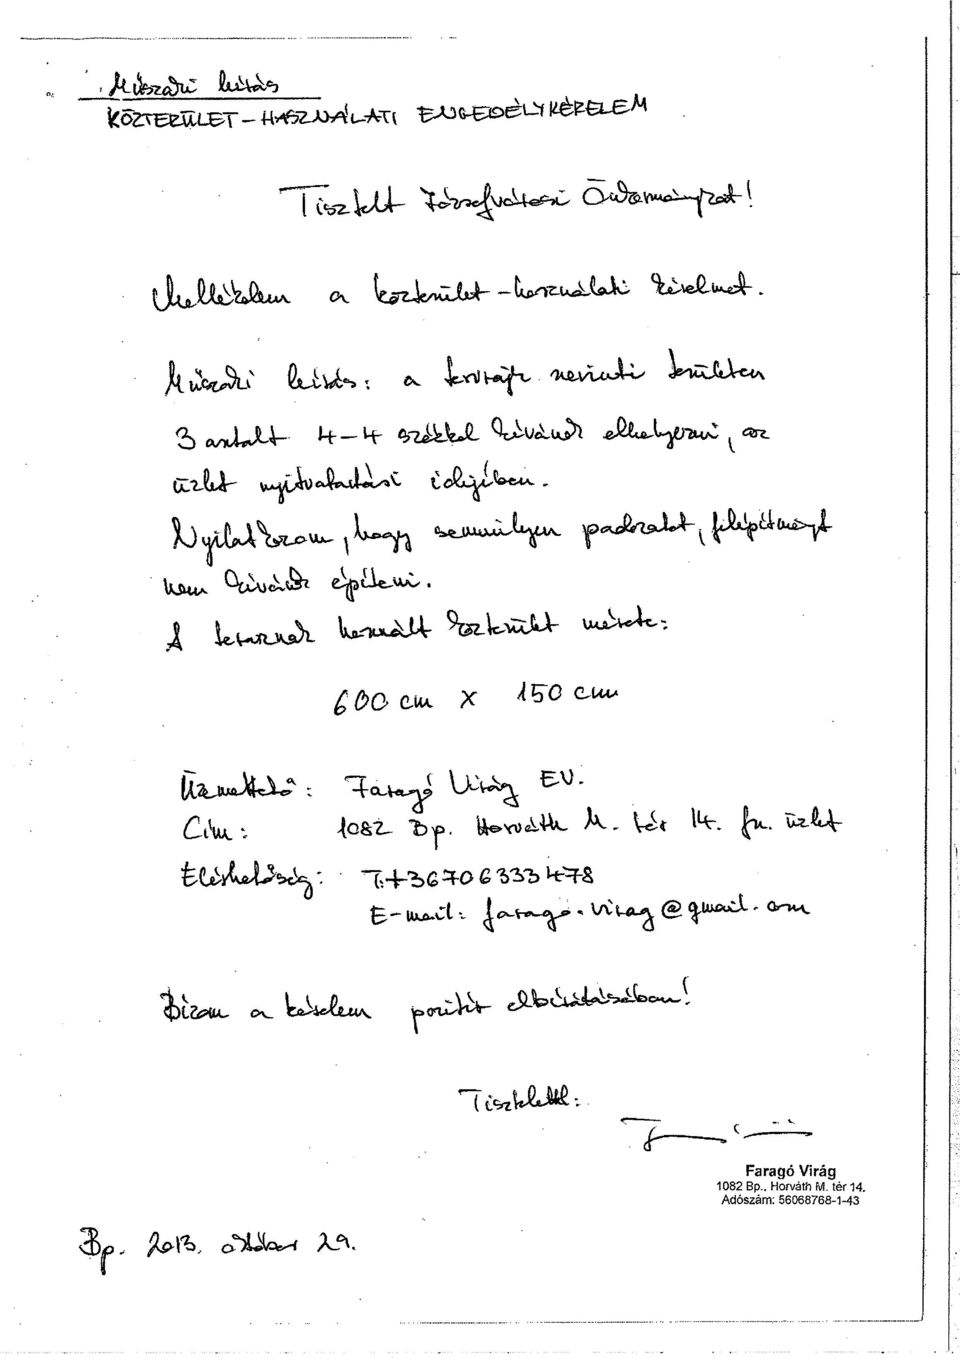 Műszaki leírás
KÖZTERÜLET-HASZNÁLATI ENGEDÉLYKÉRELEM
Tisztelt Józsefvárosi Önkormányzat!
Mellékelem a közterület-használati kérelmet.
Műszaki leírás: a tervrajz szerinti területen
3 asztalt 4-4 székkel kívánok elhelyezni, az
üzlet nyitvatartási idejében.
Nyilatkozom, hogy semmilyen padozatot, felépítményt
nem kívánok építeni.
A terasznak használt közterület mérete:
600 cm x 150 cm
Üzemeltető: Faragó Virág EV.
Cím: 1082 Bp. Horváth M. tér 14. fsz. üzlet
Elérhetőség: T:+36706333478
E-mail: farago.virag@gmail.com
Bízom a kérelem pozitív elbírálásában!
Tisztelettel:
Faragó Virág
1082 Bp., Horváth M. tér 14.
Adószám: 56068768-1-43
Bp. 2013. október 29.